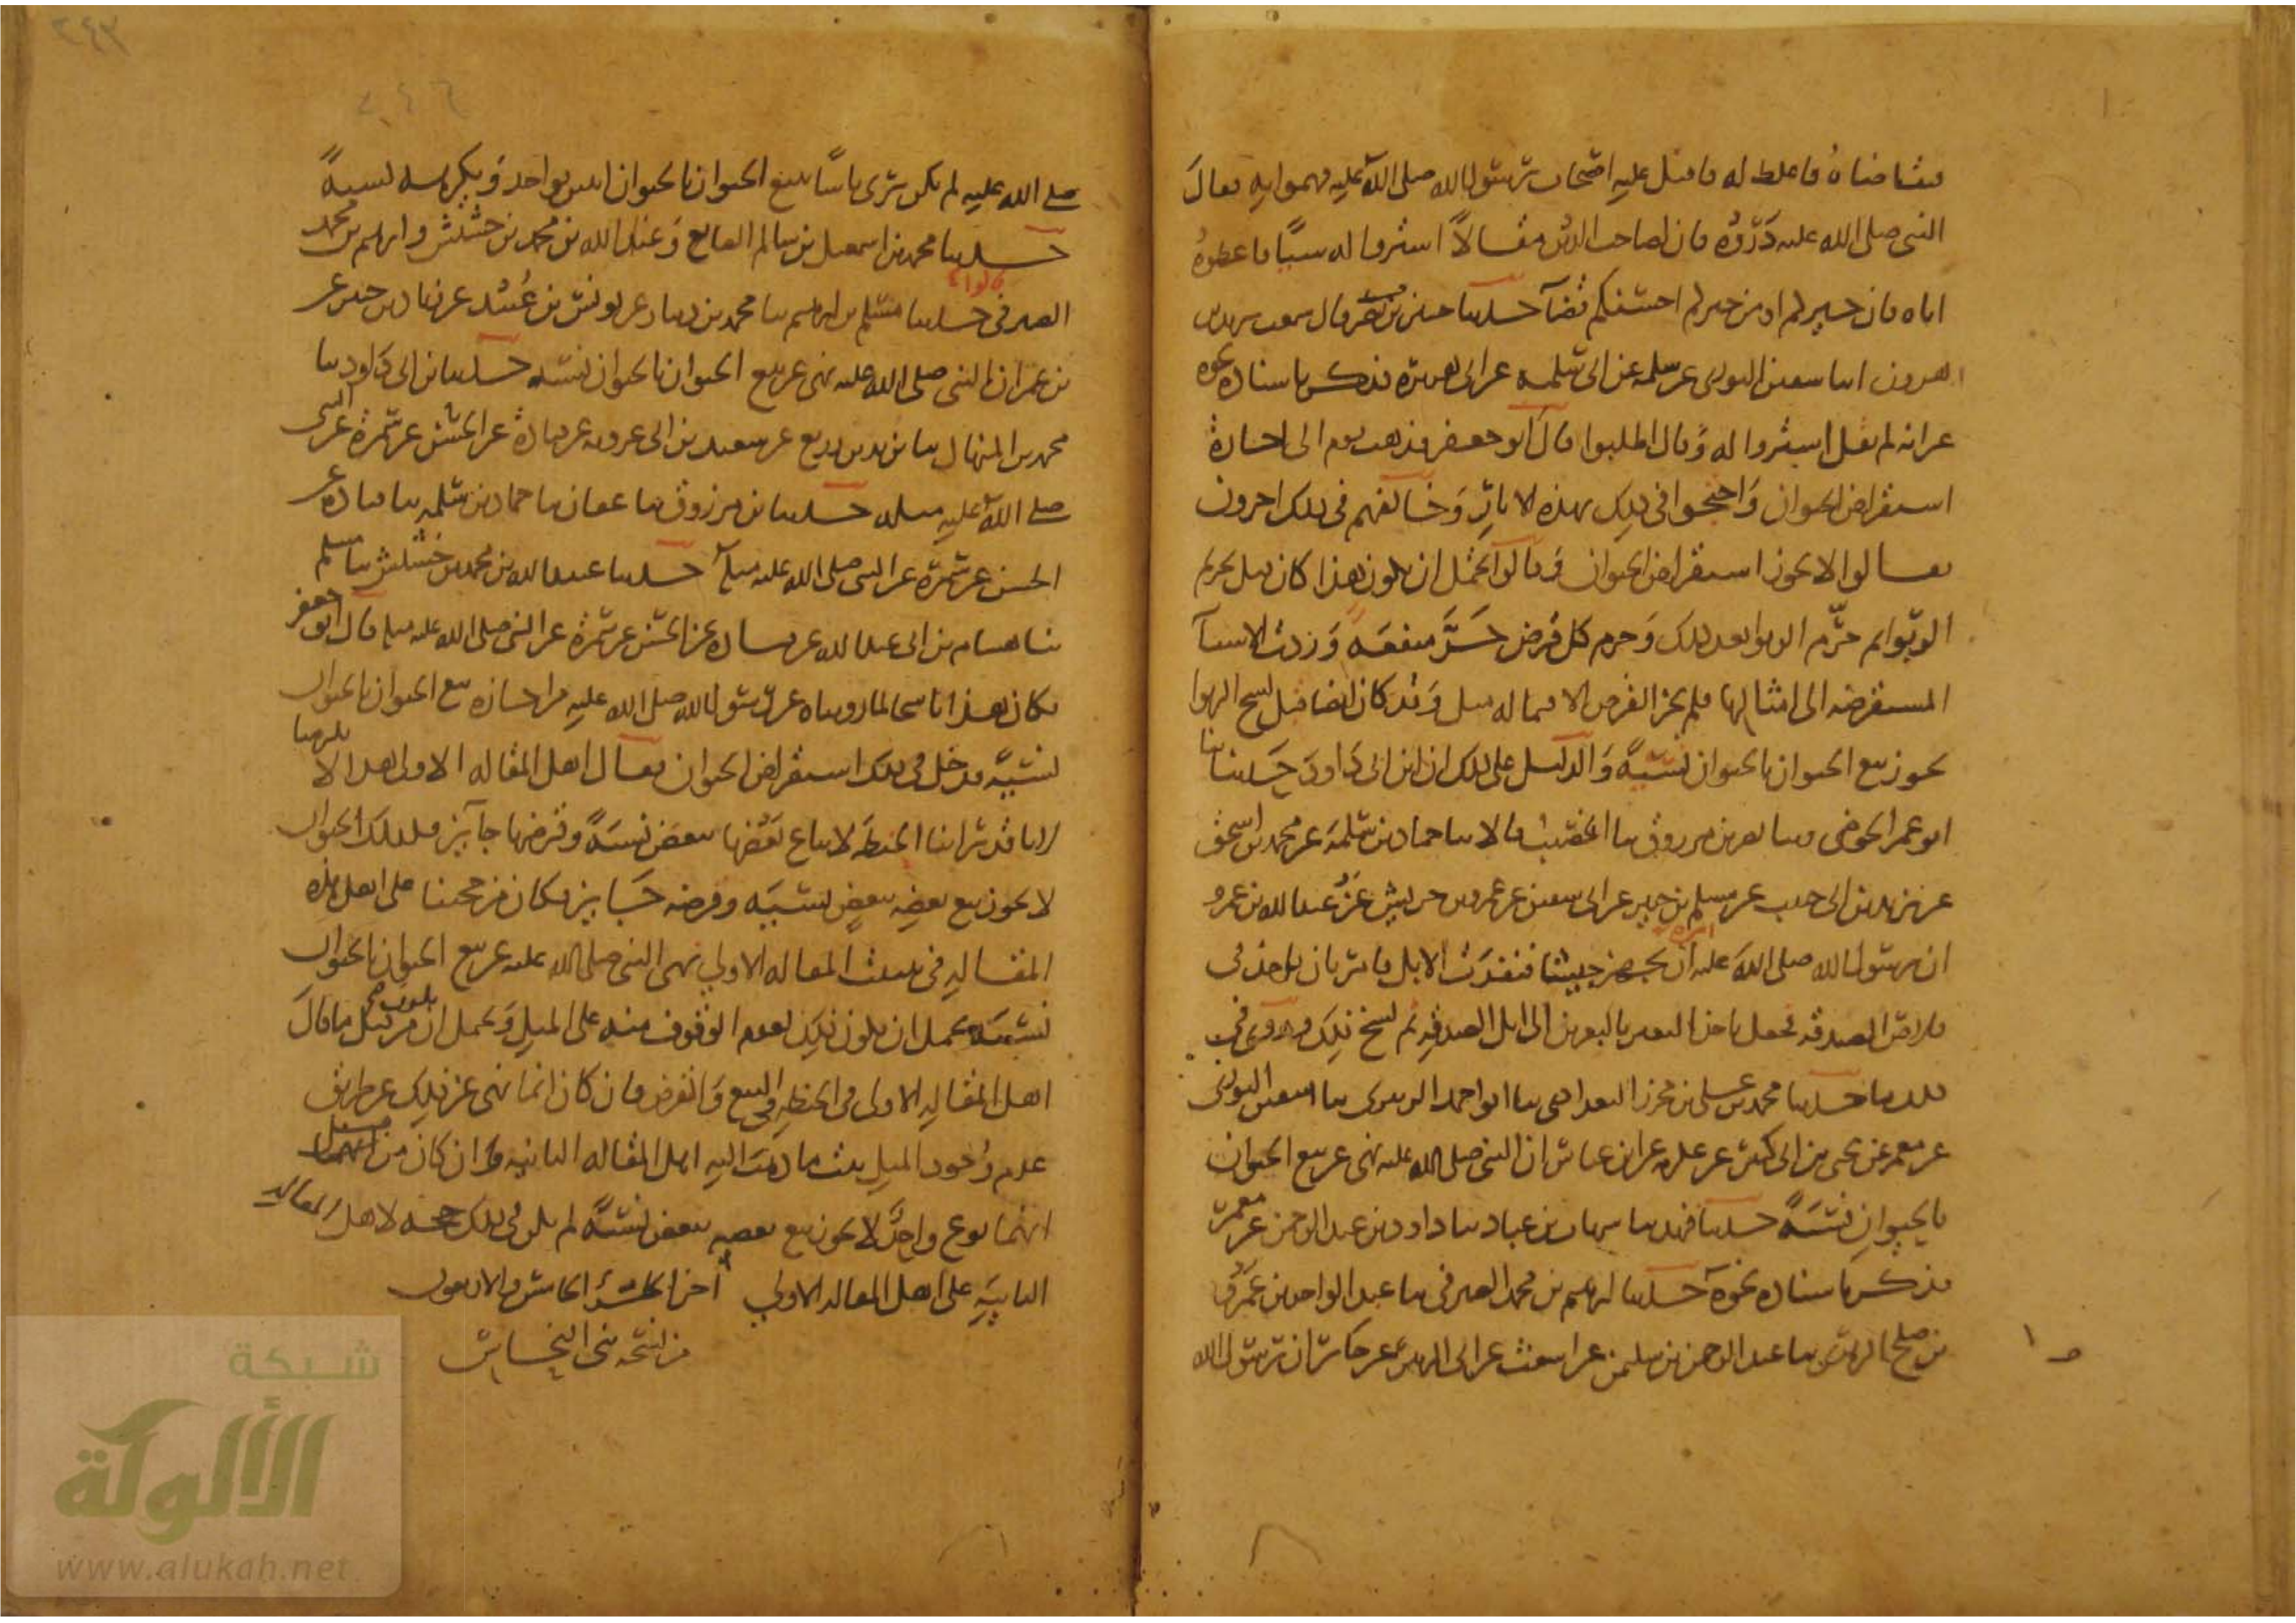 يتقاضاه فاغلظ له فاقبل عليه اصحاب رسول الله صلى الله عليه فهموا به فقال
النبى صلى الله عليه ذروه فان لصاحب الحق مقالا اشتروا له سنا فاعطوه
اياه فان خيركم او من خيركم احسنكم قضآ حدثنا حسين بن نصر قال سمعت يزيد بن
هرون انبا سفين الثورى عن سلمة عن ابى سلمة عن ابى هريرة فذكر باسناده نحوه
غير انه لم يقل اشتروا له وقال اطلبوا قال ابو جعفر فذهب قوم الى اجازة
استقراض الحيوان واحتجوا فى ذلك بهذه الاثار وخالفهم فى ذلك اخرون
فقالوا لا يجوز استقراض الحيوان وقالوا يحتمل ان يكون هذا كان قبل تحريم
الربوا ثم حرم الربوا بعد ذلك وحرم كل قرض جر منفعة وردت الاشيآ
المستقرضه الى امثالها فلم يجز القرض الا فيما له مثل وقد كان ايضا قبل نسخ الربوا
يجوز بيع الحيوان بالحيوان نسئة والدليل على ذلك ان ابن ابى داود حدثنا قال ثنا
ابو عمر الحوضى وثنا نصر بن مرزوق ثنا الخصيب قالا ثنا حماد بن سلمة عن محمد بن اسحق
عن يزيد بن ابى حبيب عن مسلم بن جبير عن ابى سفين عن عمرو بن حريش عن عبد الله بن عمرو
ان رسول الله صلى الله عليه امره ان يجهز جيشا فنفدت الابل فامره ان ياخذ فى
قلاص الصدقه فجعل ياخذ البعير بالبعيرين الى ابل الصدقه ثم نسخ ذلك وروى فى
ذلك ما حدثنا محمد بن على بن محرز البغدادى ثنا ابو احمد الزبيرى ثنا سفين الثورى
عن معمر عن يحيى بن ابى كثير عن عكرمه عن ابن عباس ان النبى صلى الله عليه نهى عن بيع الحيوان
بالحيوان نسئة حدثنا فهد ثنا شهاب بن عباد ثنا داود بن عبد الرحمن عن معمر
فذكر باسناده نحوه حدثنا ابرهيم بن محمد الصيرفى ثنا عبد الواحد بن عمرو
بن صلح الزهرى ثنا عبد الرحمن بن سليمن عن اشعث عن ابى الزبير عن جابر ان رسول الله
صلى الله عليه لم يكن يرى باسا ببيع الحيوان بالحيوان اثنين بواحد ويكرهه نسية
حدثنا محمد بن اسمعيل بن سالم الصايغ وعبد الله بن محمد بن خشيش وابرهيم بن محمد
الصيرفى قالوا حدثنا مسلم بن ابرهيم ثنا محمد بن دينار عن يونس بن عبيد عن زياد بن جبير عن
بن عمر ان النبى صلى الله عليه نهى عن بيع الحيوان بالحيوان نسئه حدثنا بن ابى داود ثنا
محمد بن المنهال ثنا يزيد بن زريع عن سعيد بن ابى عروبه عن قتادة عن الحسن عن سمرة عن النبى
صلى الله عليه مثله حدثنا بن مرزوق ثنا عفان ثنا حماد بن سلمه ثنا قتاده عن
الحسن عن سمرة عن النبى صلى الله عليه مثله حدثنا عبد الله بن محمد بن خشيش ثنا مسلم
ثنا هشام بن ابى عبد الله عن قتاده عن الحسن عن سمرة عن النبى صلى الله عليه مثله قال ابو جعفر
فكان هذا ناسخا لما رويناه عن رسول الله صلى الله عليه من اجازه بيع الحيوان بالحيوان
نسئة فدخل فى ذلك استقراض الحيوان فقال اهل المقاله الاولى هذا لا يلزمنا
لانا قد راينا الحنطة لا يباع بعضها ببعض نسئة وقرضها جآيز فكذلك الحيوان
لا يجوز بيع بعضه ببعض نسئيه وقرضه جايز فكان من حجتنا على اهل هذه
المقاله فى تثبيت المقاله الاولى نهى النبى صلى الله عليه عن بيع الحيوان بالحيوان
نسئه يحتمل ان يكون ذلك لعدم الوقوف منه على المثل ويحتمل ان يكون من قبل ما قال
اهل المقاله الاولى فى الحنطه فى البيع والقرض فان كان انما نهى عن ذلك عن طريق
عدم وجود المثل ثبت ما ذهب اليه اهل المقاله الثانيه وان كان من قبل
انهما نوع واحد لا يجوز بيع بعضه ببعض نسئة لم يكن فى ذلك حجه لاهل المقاله
الثانيه على اهل المقاله الاولى اخر الجزء الخامس والاربعون
من نسخة بنى النحاس
شبكة
الألوكة
www.alukah.net